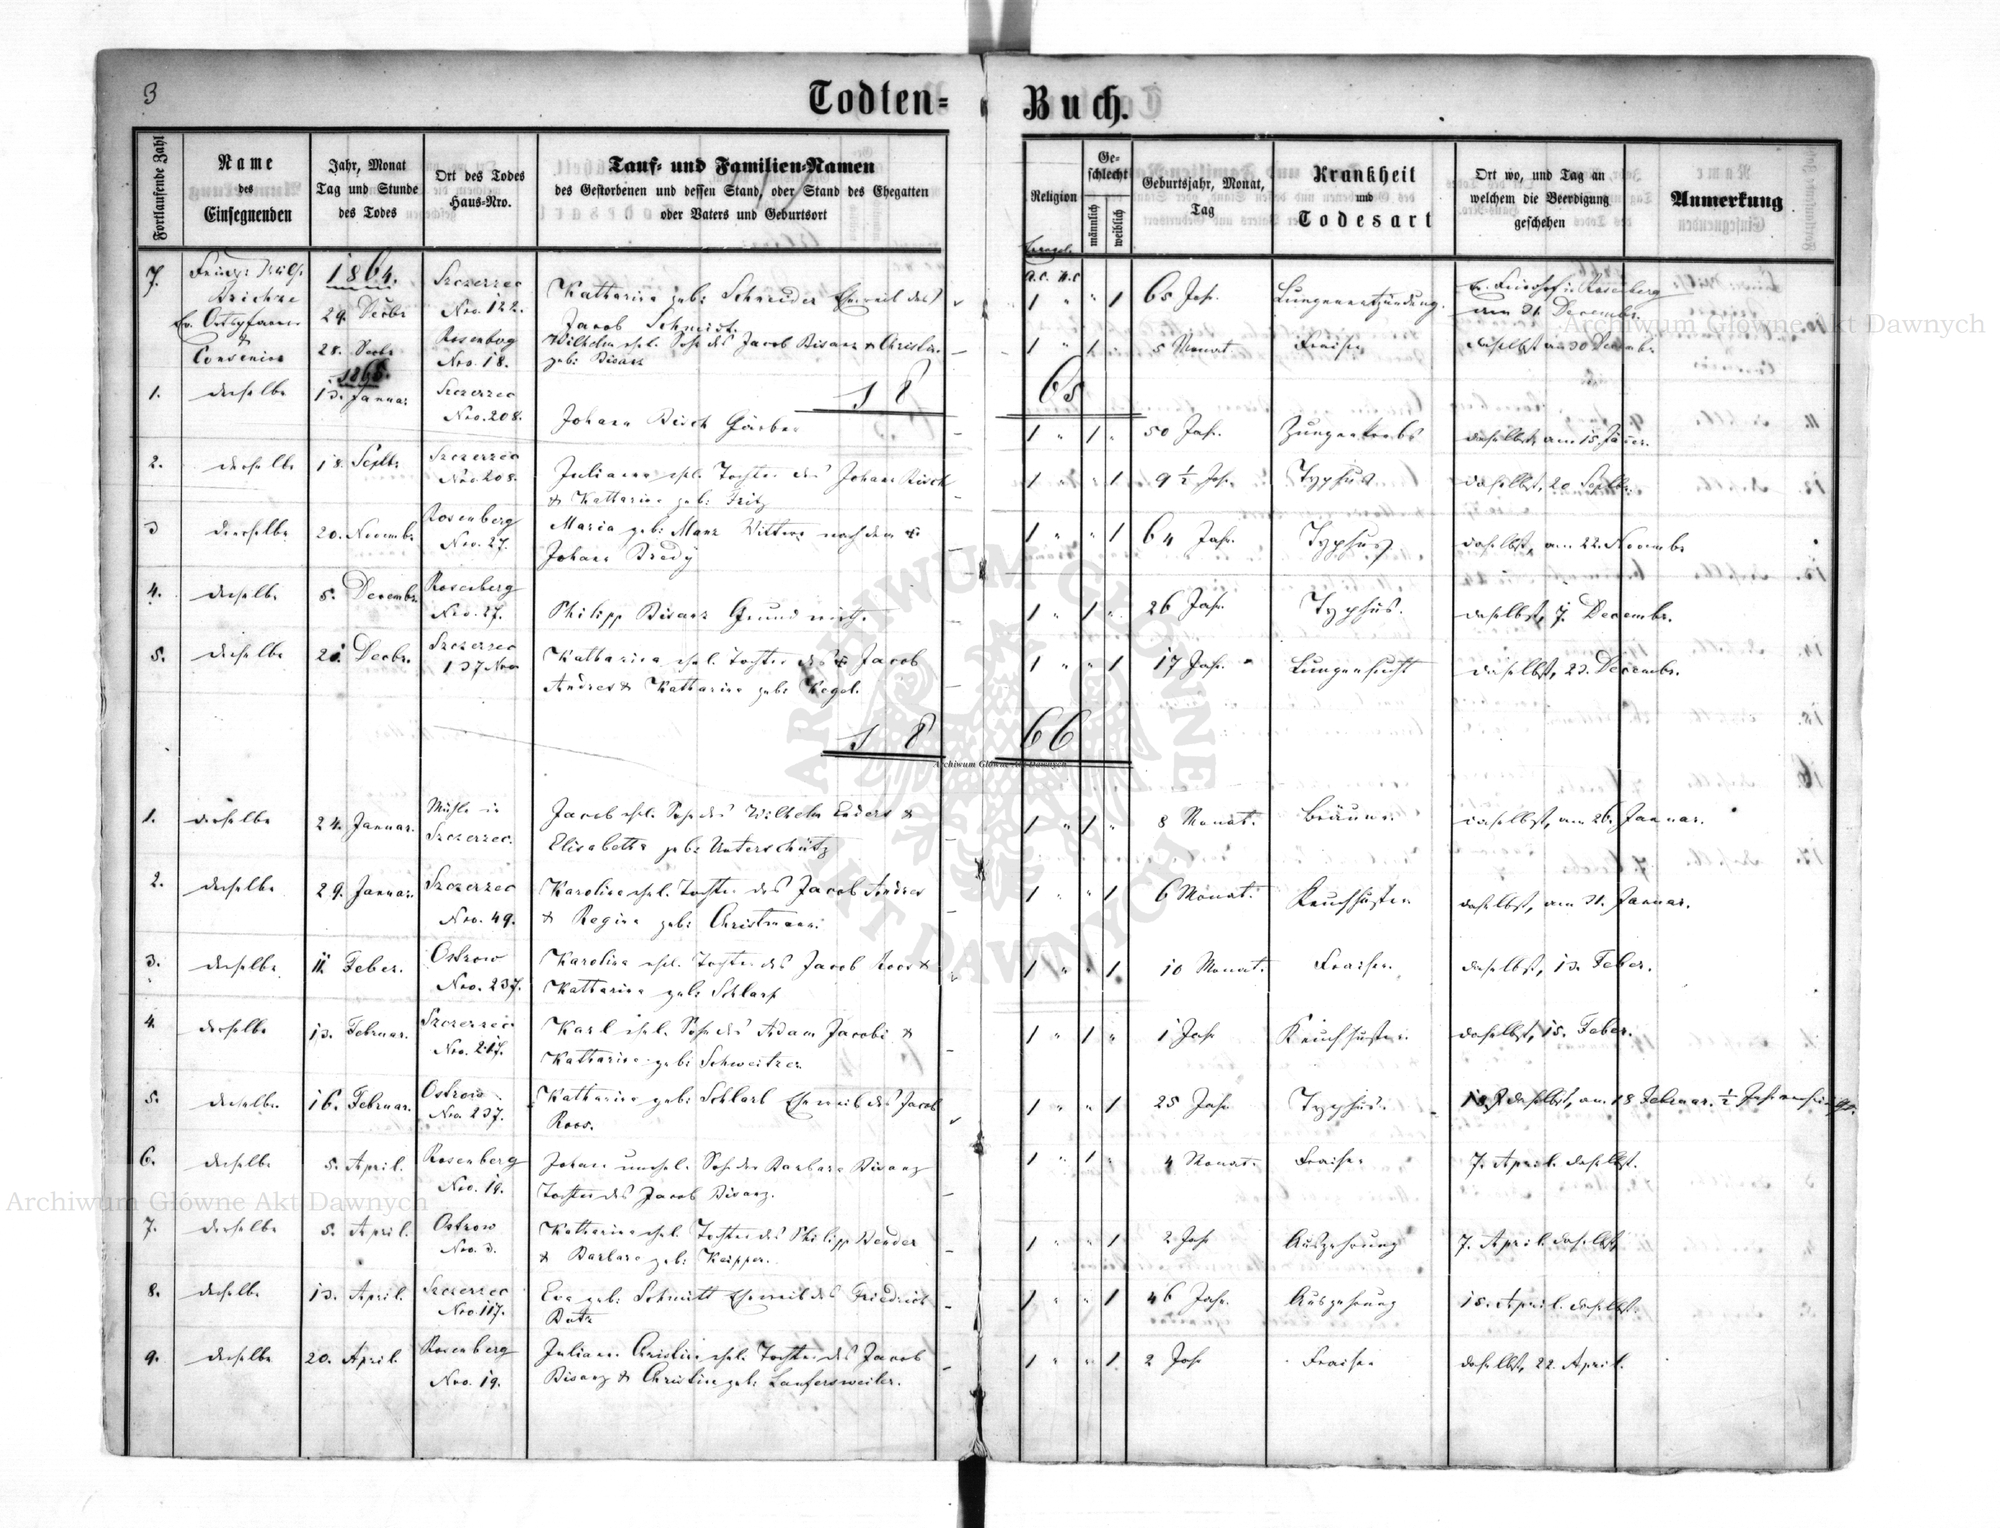 3
Todten=
Buch.
Fortlaufende Zahl
Name
des
Einsegnenden
Jahr, Monat
Tag und Stunde
des Todes
Ort des Todes
Haus=Nro.
Tauf= und Familien=Namen
des Gestorbenen und dessen Stand, oder Stand des Ehegatten
oder Vaters und Geburtsort
Religion
Ge=
schlecht
männlich
weiblich
Geburtsjahr, Monat,
Tag
Krankheit
und
Todesart
Ort wo, und Tag an
welchem die Beerdigung
geschehen
Anmerkung
7.
1864.
29. Decbr
Szczerzec
Nro. 122.
Katharina geb: Schneider Eheweib des
Jacob Schmidt.
1 " " 1
65 Jahr.
Lungenentzündung.
am 31. Decembr.
28. Decbr
Rosenberg
Nro. 18.
Wilhelm ehel. Sohn des Jacob Bisanz & Christine
geb: Bisanz
1 " 1
5 Monat
Fraisen
daselbst am 30 Decembr
1865.
18
65
1.
derselbe
13. Januar
Szczerzec
Nro. 208.
Johann Bisch Gärber
1 " 1 "
50 Jahr.
Zungenkrebs
daselbst am 15. Jäner.
2.
derselbe
18. Septbr
Szczerzec
Nro. 208.
Juliana ehel. Tochter des Johann Bisch
& Katharina geb: Fritz
1 " " 1
9 ½ Jahr
Typhus
daselbst, 20 Septbr.
3
derselbe
20. Novembr
Rosenberg
Nro. 27.
Maria geb: Manz Wittwe nach dem
Johann Bredy
1 " " 1
64 Jahr.
Typhus
daselbst, am 22. Novembr
4.
derselbe
5. Decembr.
Rosenberg
Nro. 27.
Philipp Bisanz Grundwirth
1 " 1 "
26 Jahr.
Typhus.
daselbst, 7. Decembr.
5.
derselbe
21. Decbr.
Szczerzec
137 Nro
Katharina ehel. Tochter des Jacob
Andres & Katharina geb: Kegel.
1 " " 1
17 Jahr.
Lungensucht
daselbst, 23. Decembr.
18
66
1.
derselbe
24. Januar.
Mühle in
Szczerzec.
Jacob ehel. Sohn des Wilhelm Enders &
Elisabetha geb: Unterschütz
1 " 1 "
8 Monat.
Bräune.
daselbst, am 26. Januar.
2.
derselbe
29. Januar.
Szczerzec
Nro. 49.
Karolina ehel. Tochter des Jacob Andres
& Regina geb: Christmann.
1 " " 1
6 Monat.
Keuchhusten
daselbst, am 31. Januar.
3.
derselbe
11. Feber.
Ostrow
Nro. 237.
Karolina ehel. Tochter des Jacob Roos &
Katharina geb: Schlarb
1 " " 1
10 Monat.
Fraisen.
daselbst, 13. Feber.
4.
derselbe
13. Februar.
Szczerzec
Nro. 217.
Karl ehel. Sohn des Adam Jacobi &
Katharina geb: Schweitzer
1 " 1 "
1 Jahr
Keuchhusten.
daselbst, 15. Feber.
5.
derselbe
16. Februar.
Ostrow
Nro. 237.
Katharina geb: Schlarb Eheweib des Jacob
Roos.
1 " " 1
25 Jahr
Typhus.
daselbst, am 18 Februar.
6.
derselbe
5. April.
Rosenberg
Nro. 19.
Johann unehel. Sohn der Barbara Bisanz
Tochter des Jacob Bisanz.
1 " 1 "
4 Monat.
Fraisen
7. April. daselbst.
7.
derselbe
5. April.
Ostrow
Nro. 3.
Katharina ehel. Tochter des Philipp Bender
& Barbara geb: Keipper.
1 " " 1
2 Jahr
Auszehrung
7. April. daselbst
8.
derselbe
13. April.
Szczerzec
Nro. 117.
Eva geb: Schmitt Eheweib des Friedrich
Butz
1 " " 1
46 Jahr.
Auszehrung
15. April. daselbst.
9.
derselbe
20. April.
Rosenberg
Nro. 19.
Juliana Christine ehel. Tochter des Jacob
Bisanz & Christine geb: Laufersweiler.
1 " " 1
2 Jahr
Fraisen
daselbst, 22. April.
Archiwum Główne Akt Dawnych
Archiwum Główne Akt Dawnych
Archiwum Główne Akt Dawnych
ARCHIWUM GŁÓWNE AKT DAWNYCH